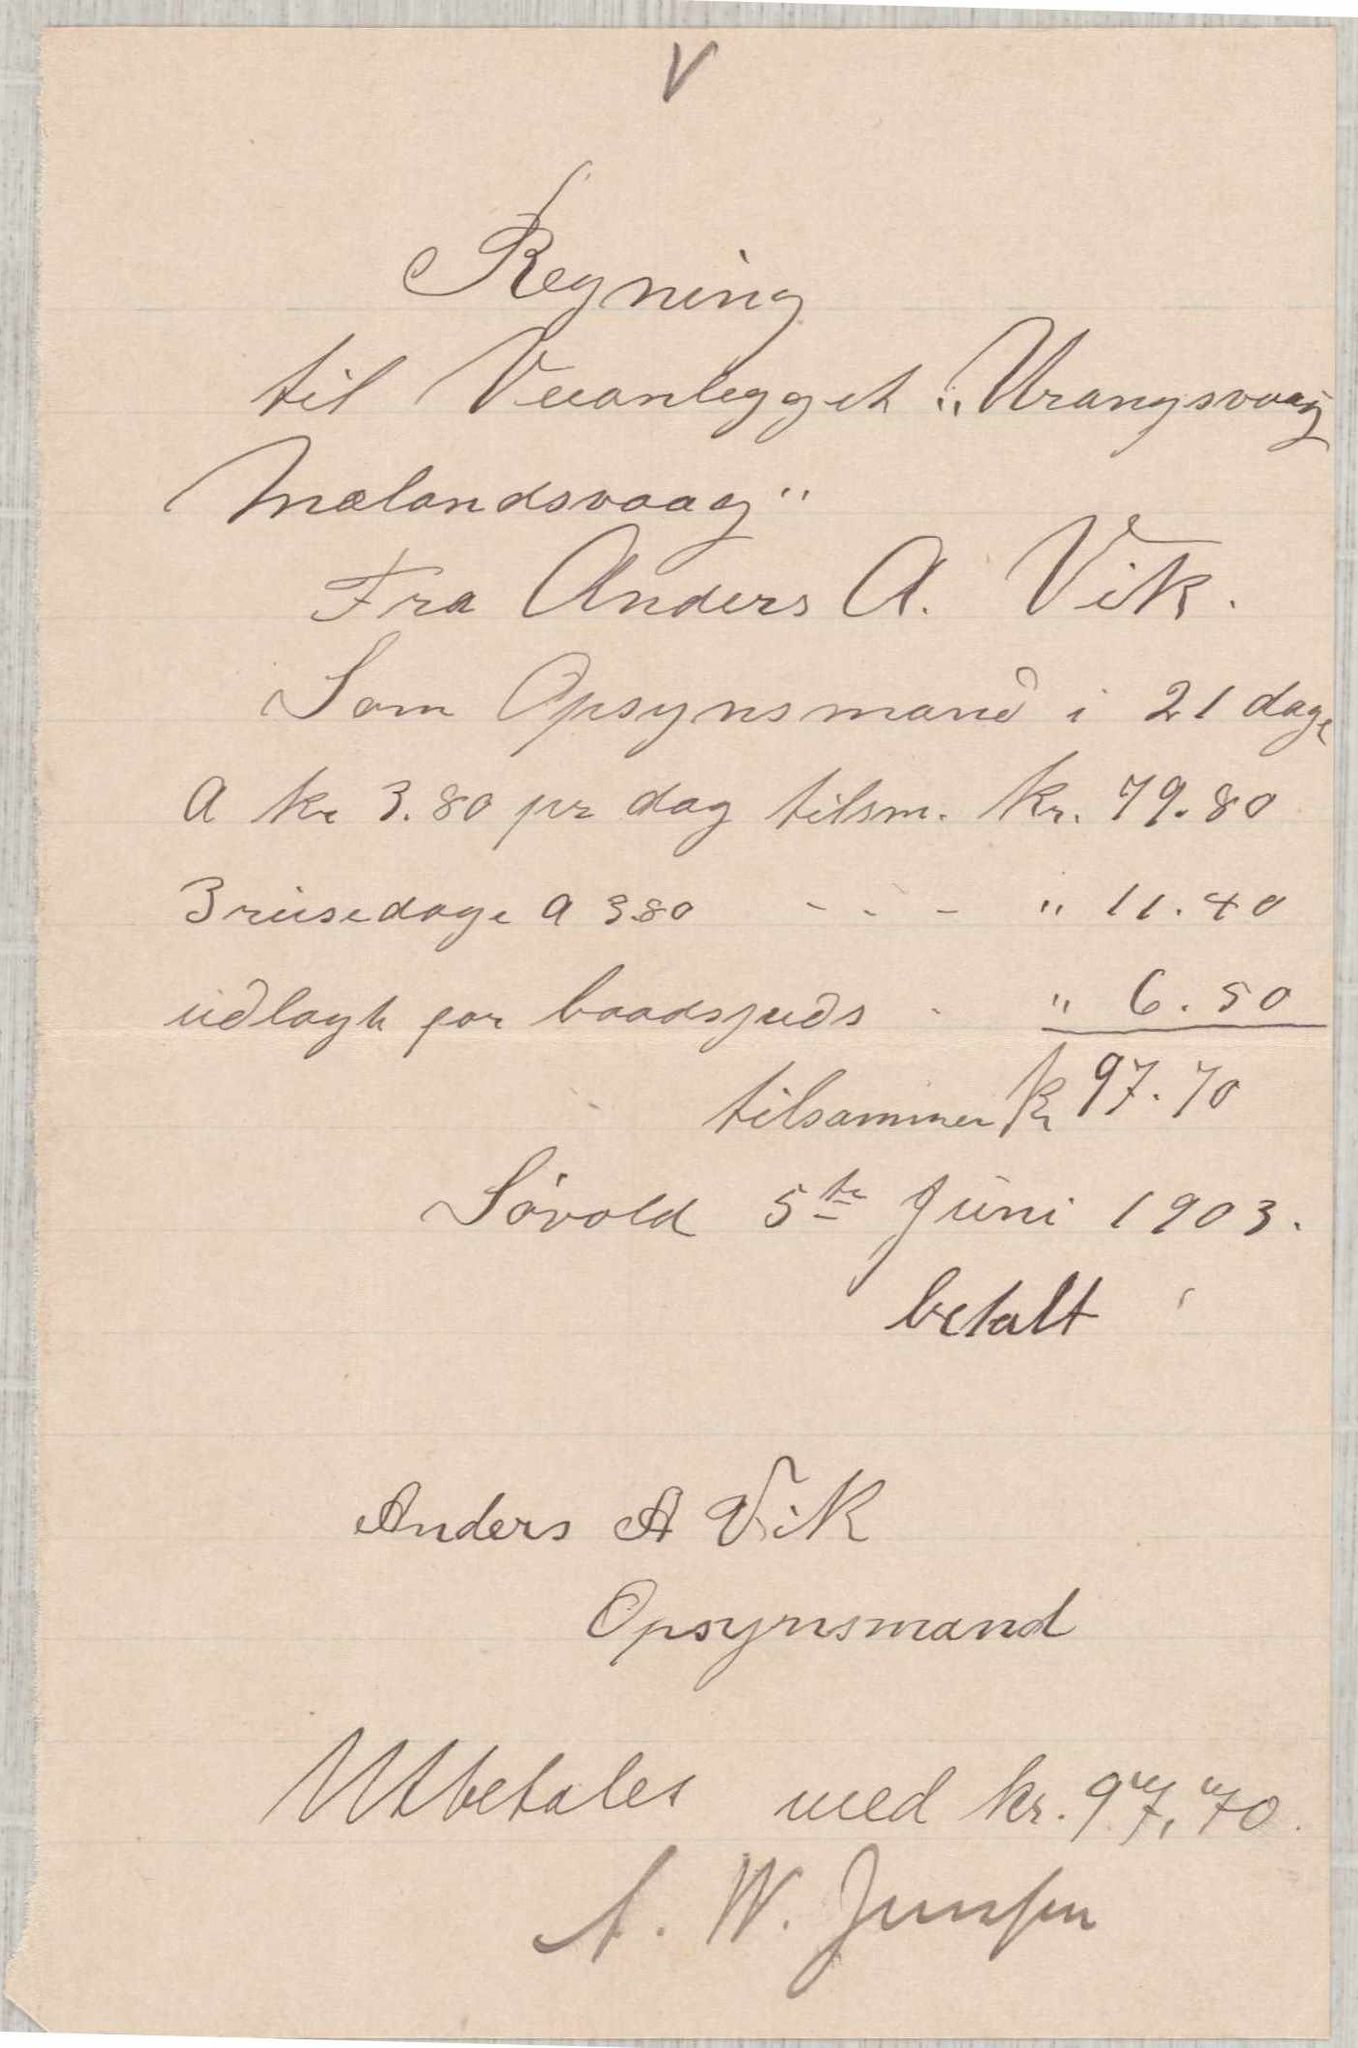 V
Regning
til Veianlegget „Vrangsvaag
Mælandsvaag"
Fra Anders A. Vik.
Som Opsynsmand i 21 dage
a kr 3.80 pr dag tilsm. kr. 79.80
3 reisedage a 3.80 - - - " 11.40
udlagt for baadsjuds - " 6.50
tilsammen kr 97.70
Søvold 5te Juni 1903.
betalt
Anders A Vik
Opsynsmand
Utbetales med kr. 97,70.
A. W. Jensen